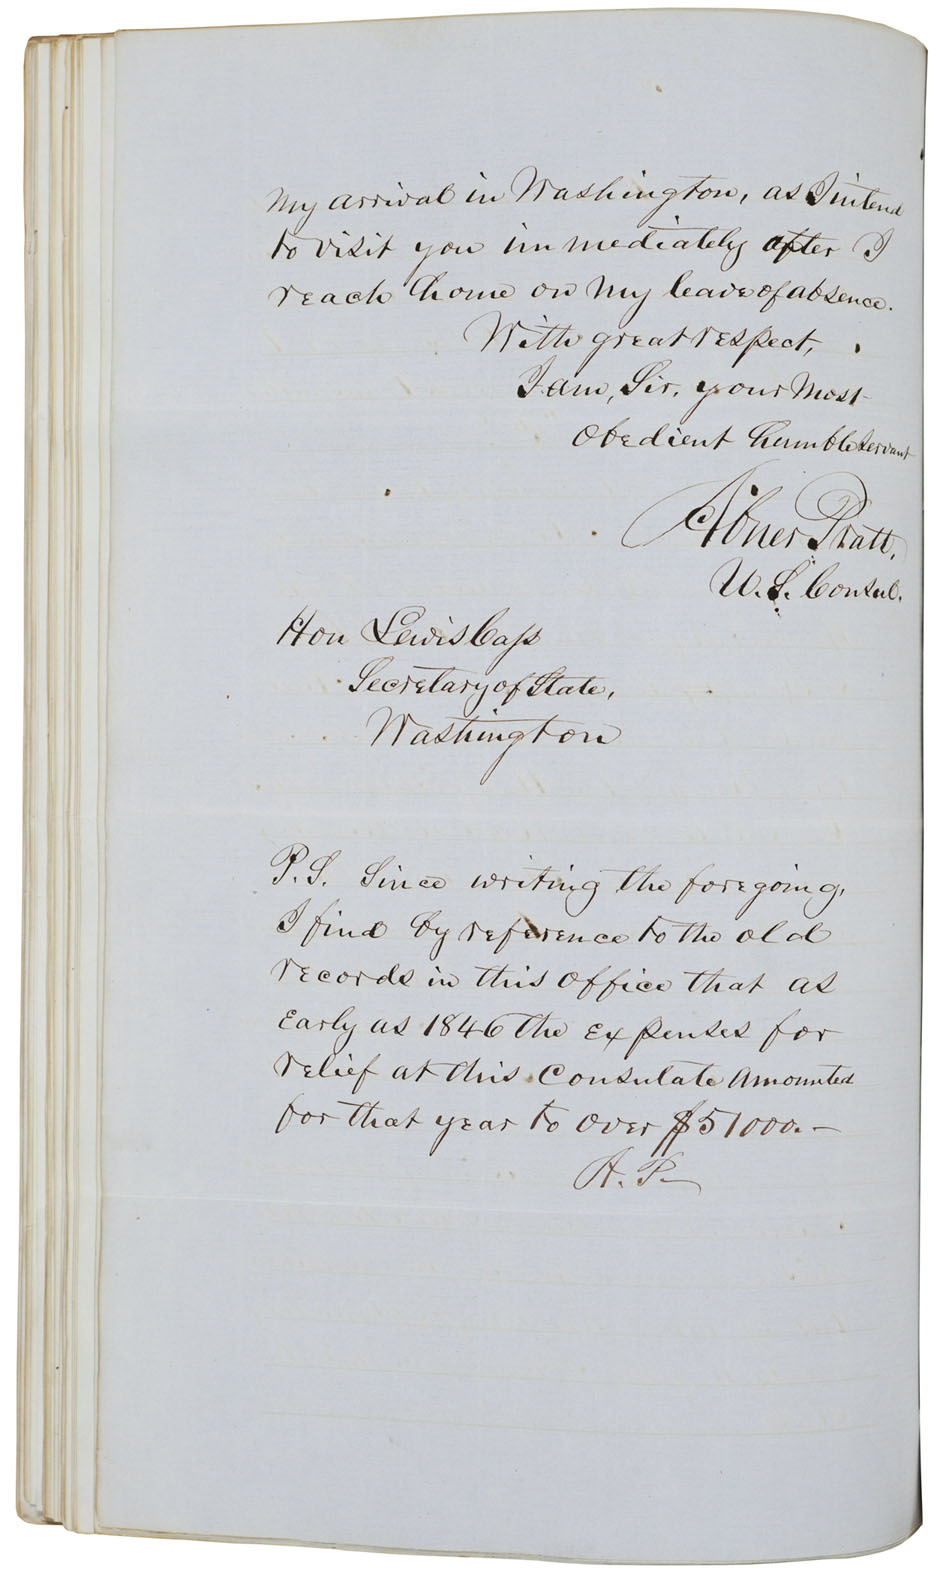 my arrival in Washington, as I intend
to visit you immediately after I
reach home on my leave of absence.
With great respect,
I am, Sir, your most
obedient humble servant
Abner Pratt,
U. S. Consul.
Hon Lewis Cass
Secretary of State,
Washington
P. S. Since writing the foregoing,
I find by reference to the old
records in this office that as
early as 1846 the expenses for
relief at this Consulate amounted
for that year to over $51000.—
A. P.